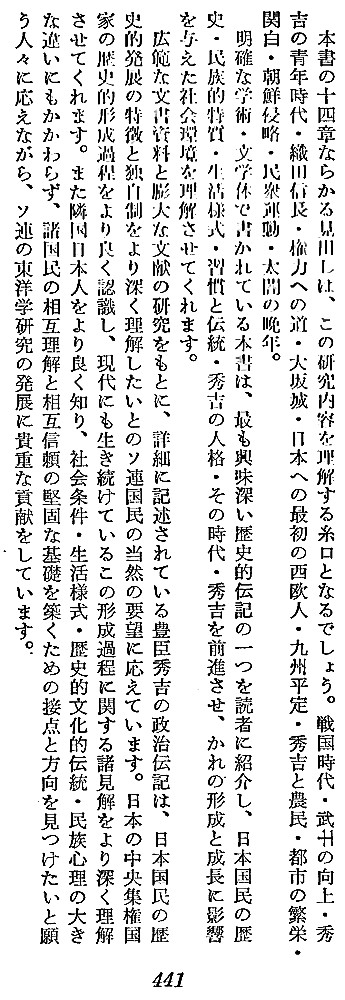 本書の十四章ならかる見出しは、この研究内容を理解する糸口となるでしょう。戦国時代・武士の向上・秀
吉の青年時代・織田信長・権力への道・大坂城・日本への最初の西欧人・九州平定・秀吉と農民・都市の繁栄・
関白・朝鮮侵略・民衆運動・太閤の晩年。
明確な学術・文学体で書かれている本書は、最も興味深い歴史的伝記の一つを読者に紹介し、日本国民の歴
史・民族的特質・生活様式・習慣と伝統・秀吉の人格・その時代・秀吉を前進させ、かれの形成と成長に影響
を与えた社会環境を理解させてくれます。
広範な文書資料と膨大な文献の研究をもとに、詳細に記述されている豊臣秀吉の政治伝記は、日本国民の歴
史的発展の特徴と独自制をより深く理解したいとのソ連国民の当然の要望に応えています。日本の中央集権国
家の歴史的形成過程をより良く認識し、現代にも生き続けているこの形成過程に関する諸見解をより深く理解
させてくれます。また隣国日本人をより良く知り、社会条件・生活様式・歴史的文化的伝統・民族心理の大き
な違いにもかかわらず、諸国民の相互理解と相互信頼の堅固な基礎を築くための接点と方向を見つけたいと願
う人々に応えながら、ソ連の東洋学研究の発展に貴重な貢献をしています。
441